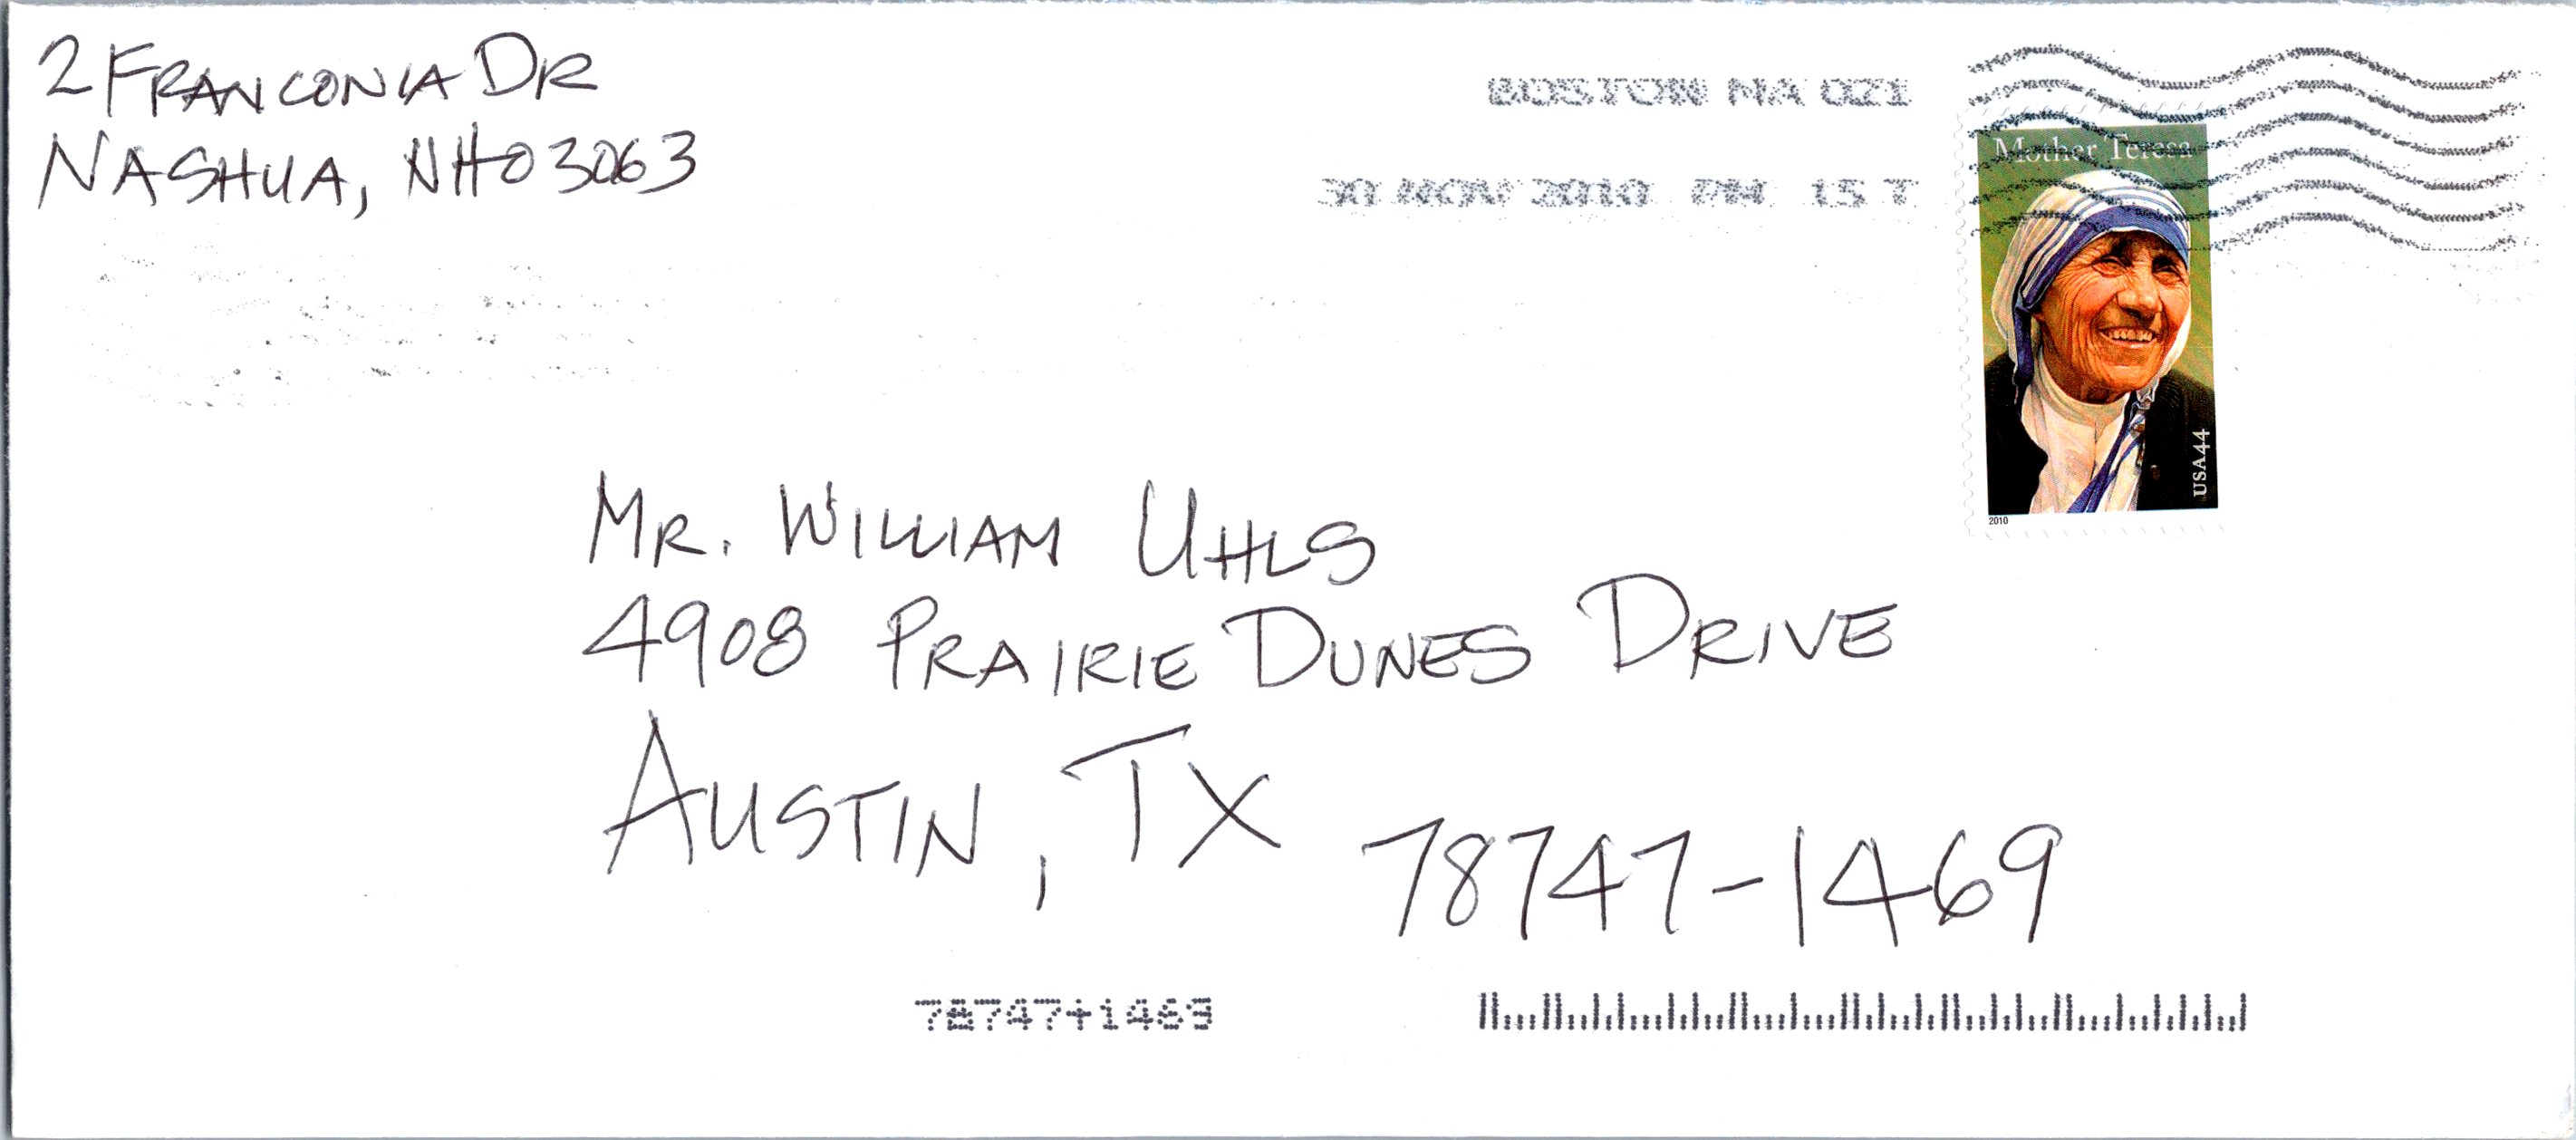 2 FRANCONIA DR
NASHUA, NH 03063
BOSTON MA 021
30 NOV 2010 PM 15 T
Mother Teresa
USA44
2010
MR. WILLIAM UHLS
4908 PRAIRIE DUNES DRIVE
AUSTIN, TX 78747-1469
78747+1469